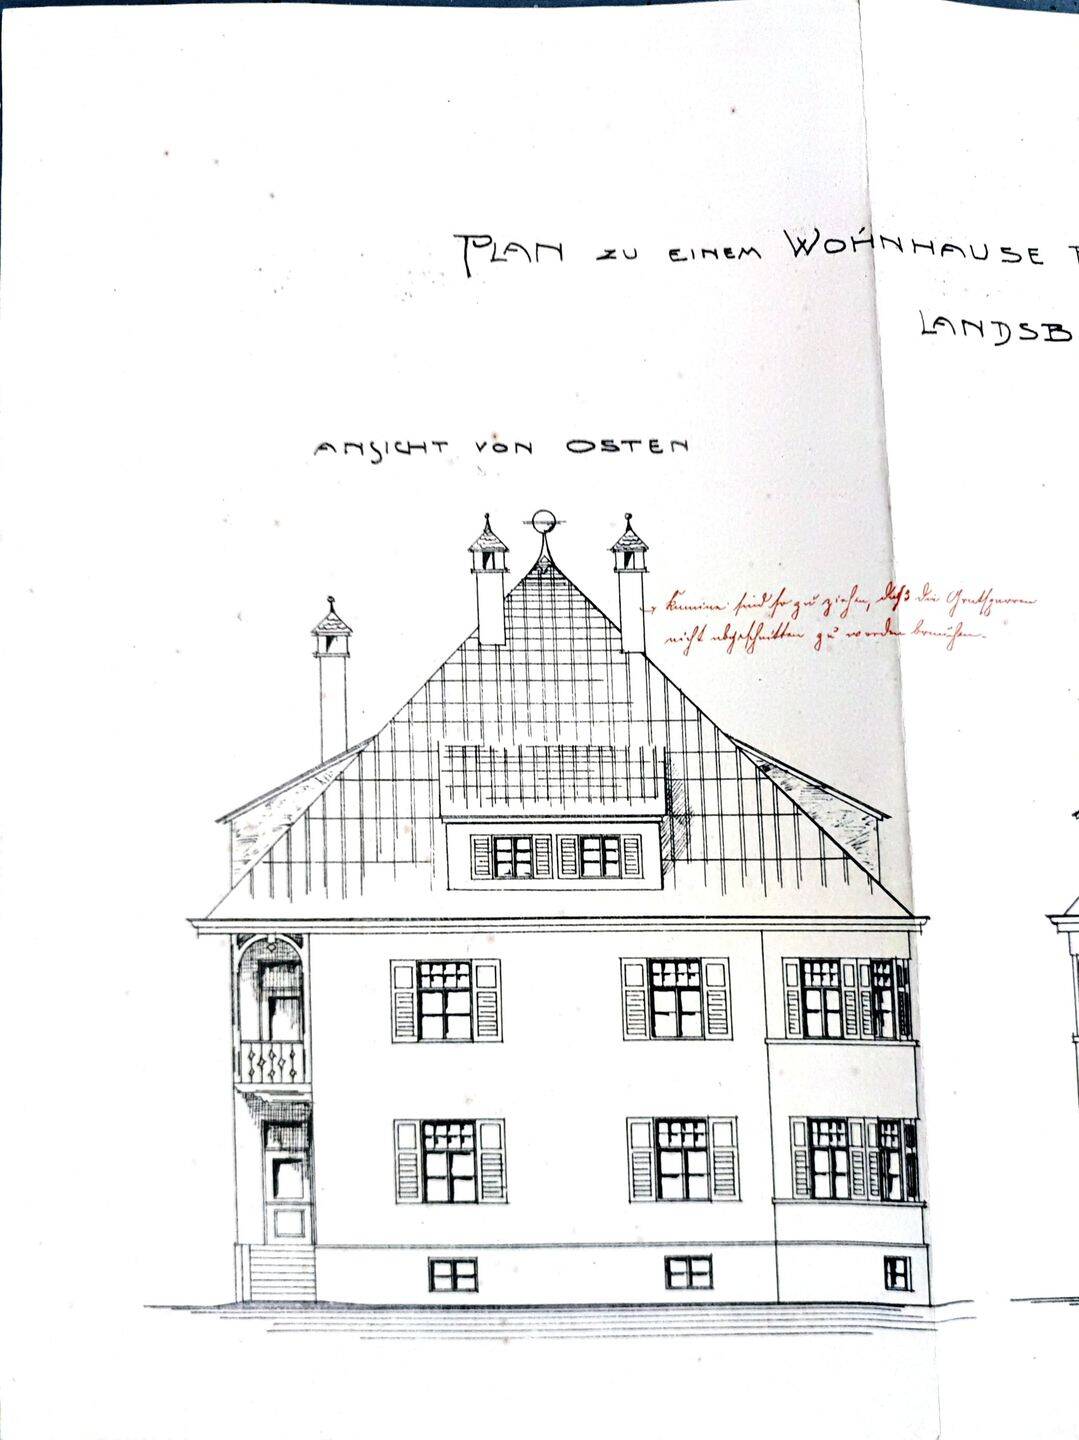 PLAN ZU EINEM WOHNHAUSE
LANDSB
ANSICHT VON OSTEN
Kamine sind so zu ziehen, daß die Gratsparren
nicht abgeschnitten zu werden brauchen.